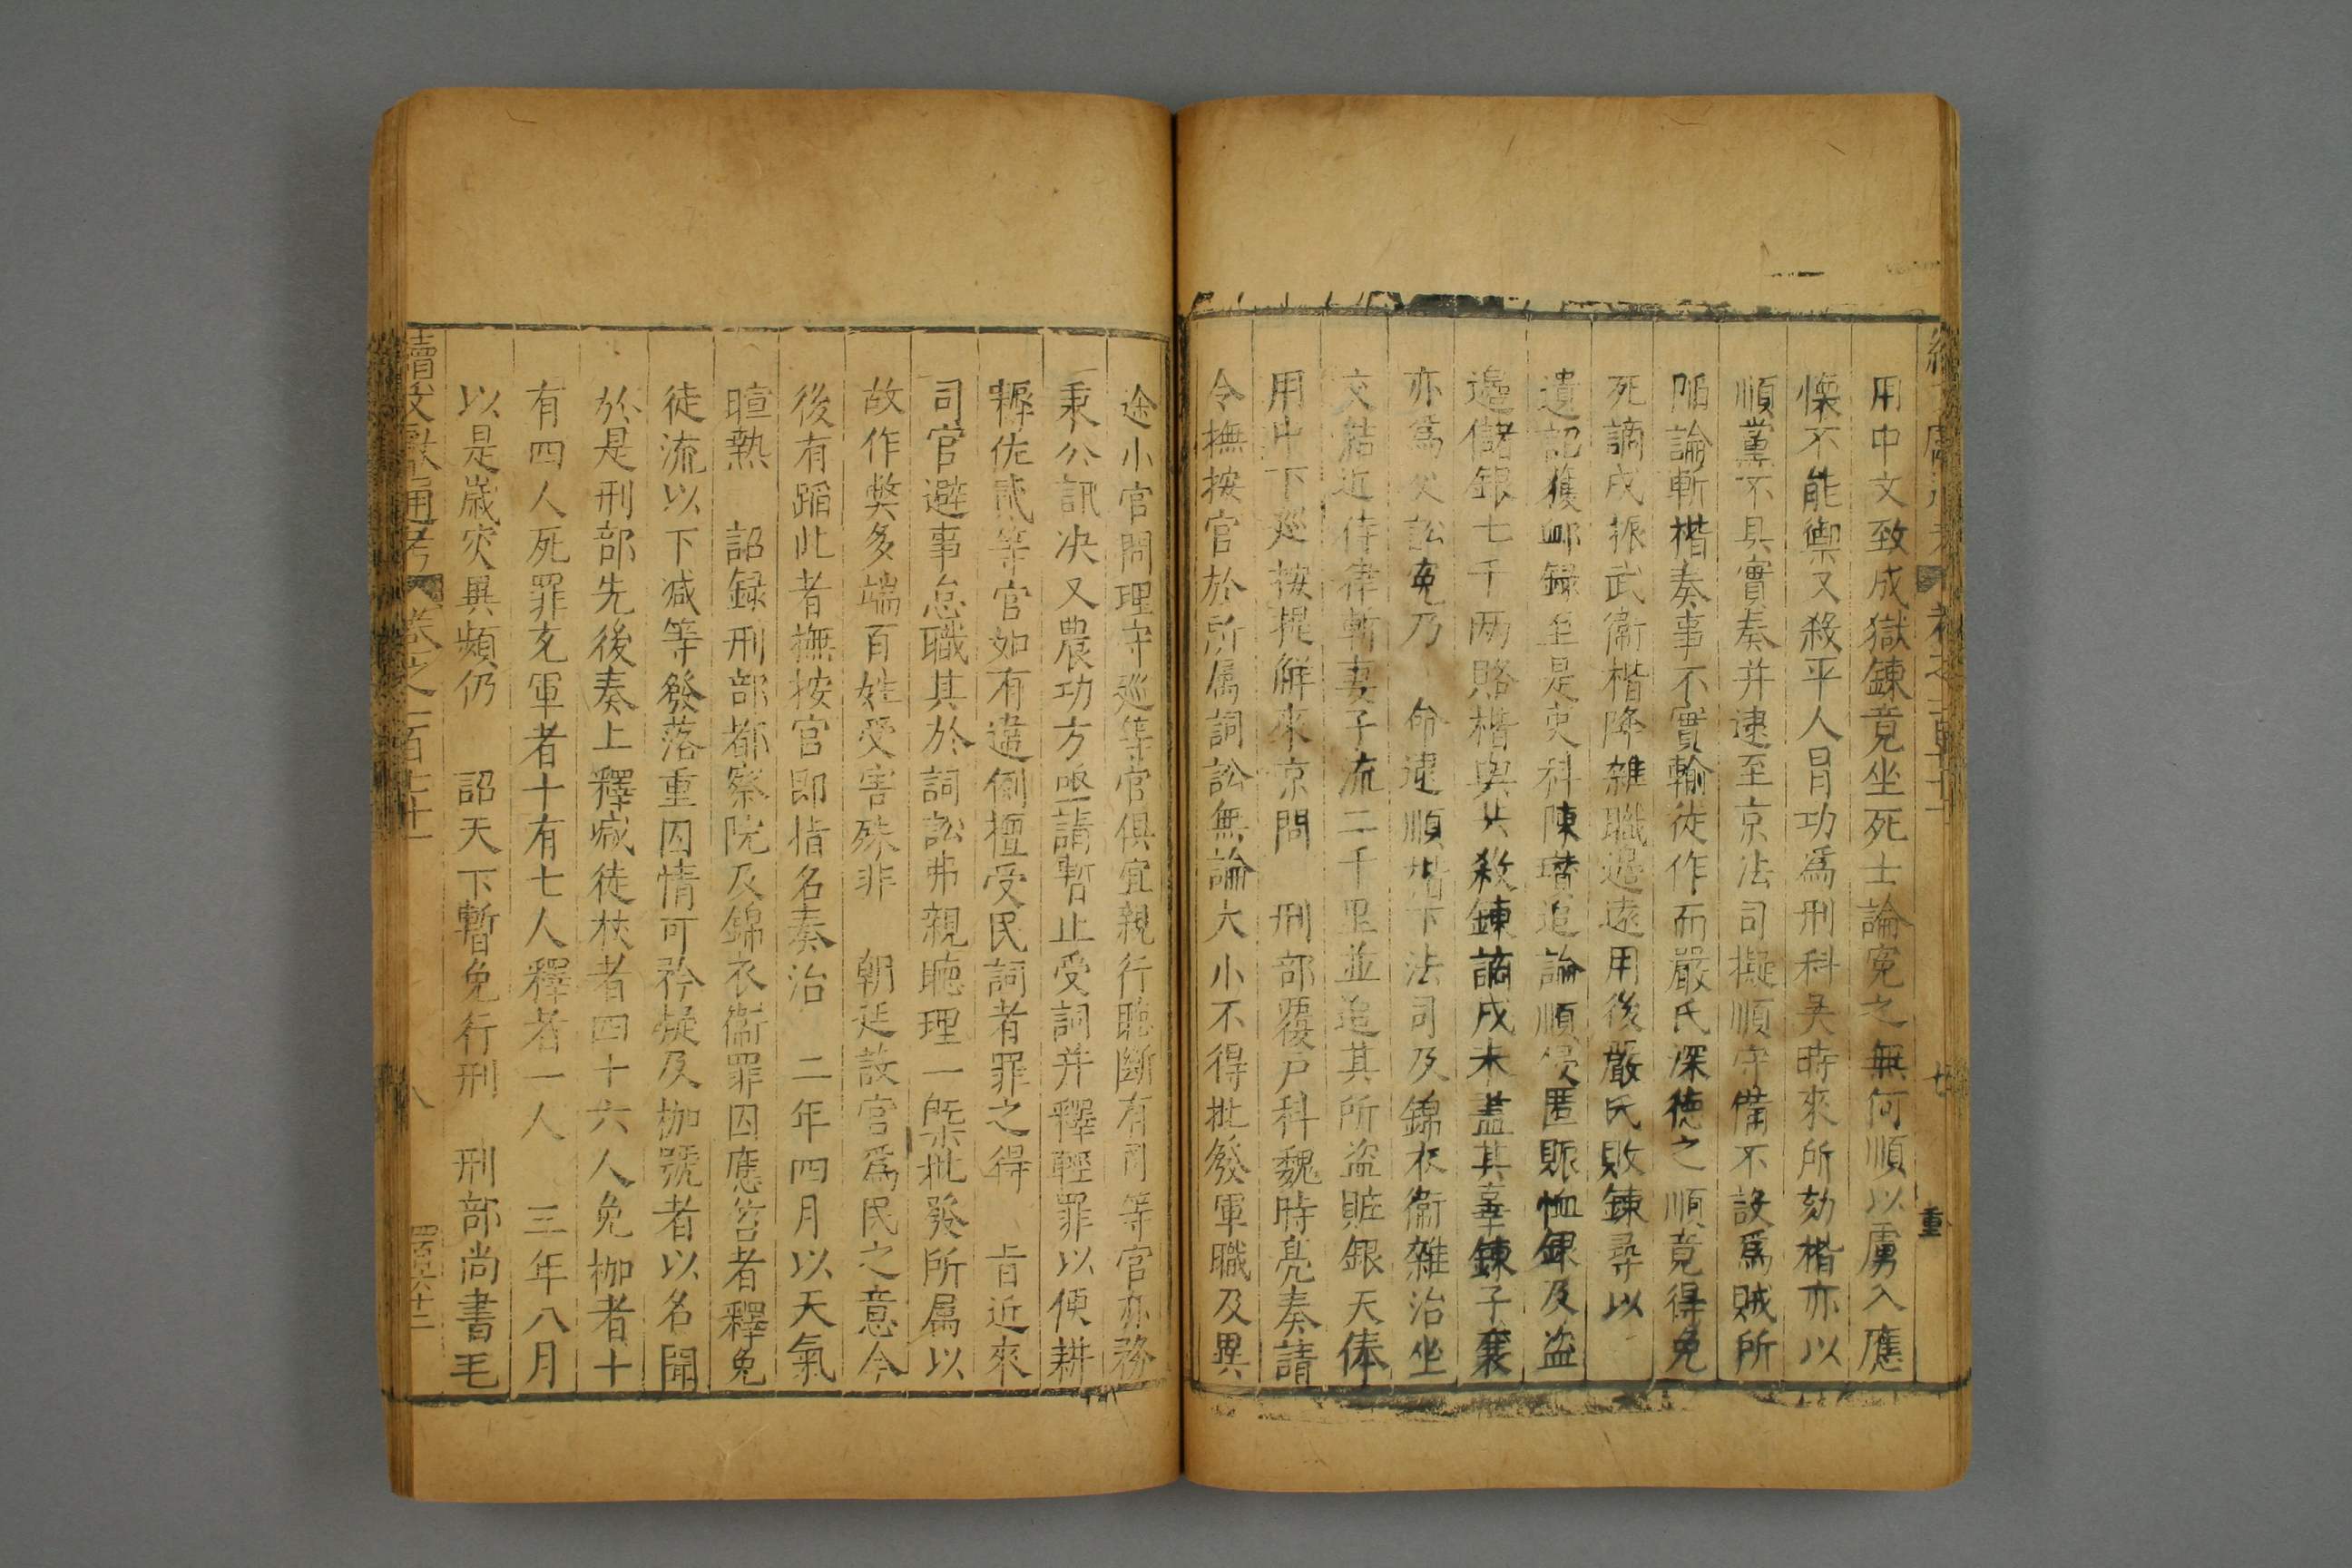 用中文致成獄錬竟坐死士論寃之無何順以虜入應
懐不能禦又殺平人冒功爲刑科吳時來所劾楷亦以
順黨不具實奏并逮至京法司擬順守備不設爲賊所
陷論斬楷奏事不實輸徒作而嚴氏深徳之順竟得免
死謫戍振武衞楷降雜職邉逺用後嚴氏敗錬㝷以
遺詔獲䘏録至是吏科陳瓚追論順侵匿賑恤銀及盗
邉儲銀七千兩賂楷與共殺錬謫戍未蓋其辜錬子襄
亦爲父訟寃乃 命逮順楷下法司及錦衣衞雜治坐
交結近侍律斬妻子流二千里並追其所盗賍銀天俸
用中下廵按提觧來京問 刑部覆户科魏時亮奏請
令撫按官於所属詞訟無論大小不得批發軍職及異
途小官問理守巡等官俱宜親行聽斷有司等官亦務
秉公訊决又農功方亟請暫止受詞并釋輕罪以便耕
耨佐貳等官如有違例擅受民詞者罪之得 㫖近來
司官避事怠職其於詞訟弗親聽理一槩批發所属以
故作獘多端百姓受害殊非 朝廷設官爲民之意今
後有蹈此者撫按官即指名奏治 二年四月以天氣
暄熱 詔録刑部都察院及錦衣衞罪囚應笞者釋免
徒流以下减等發落重囚情可矜疑及枷號者以名聞
於是刑部先後奏上釋减徒杖者四十六人免枷者十
有四人死罪充軍者十有七人釋者一人 三年八月
以是嵗灾異頻仍 詔天下暫免行刑 刑部尚書毛
續文獻通考 卷之一百七十一 八 四百六十二